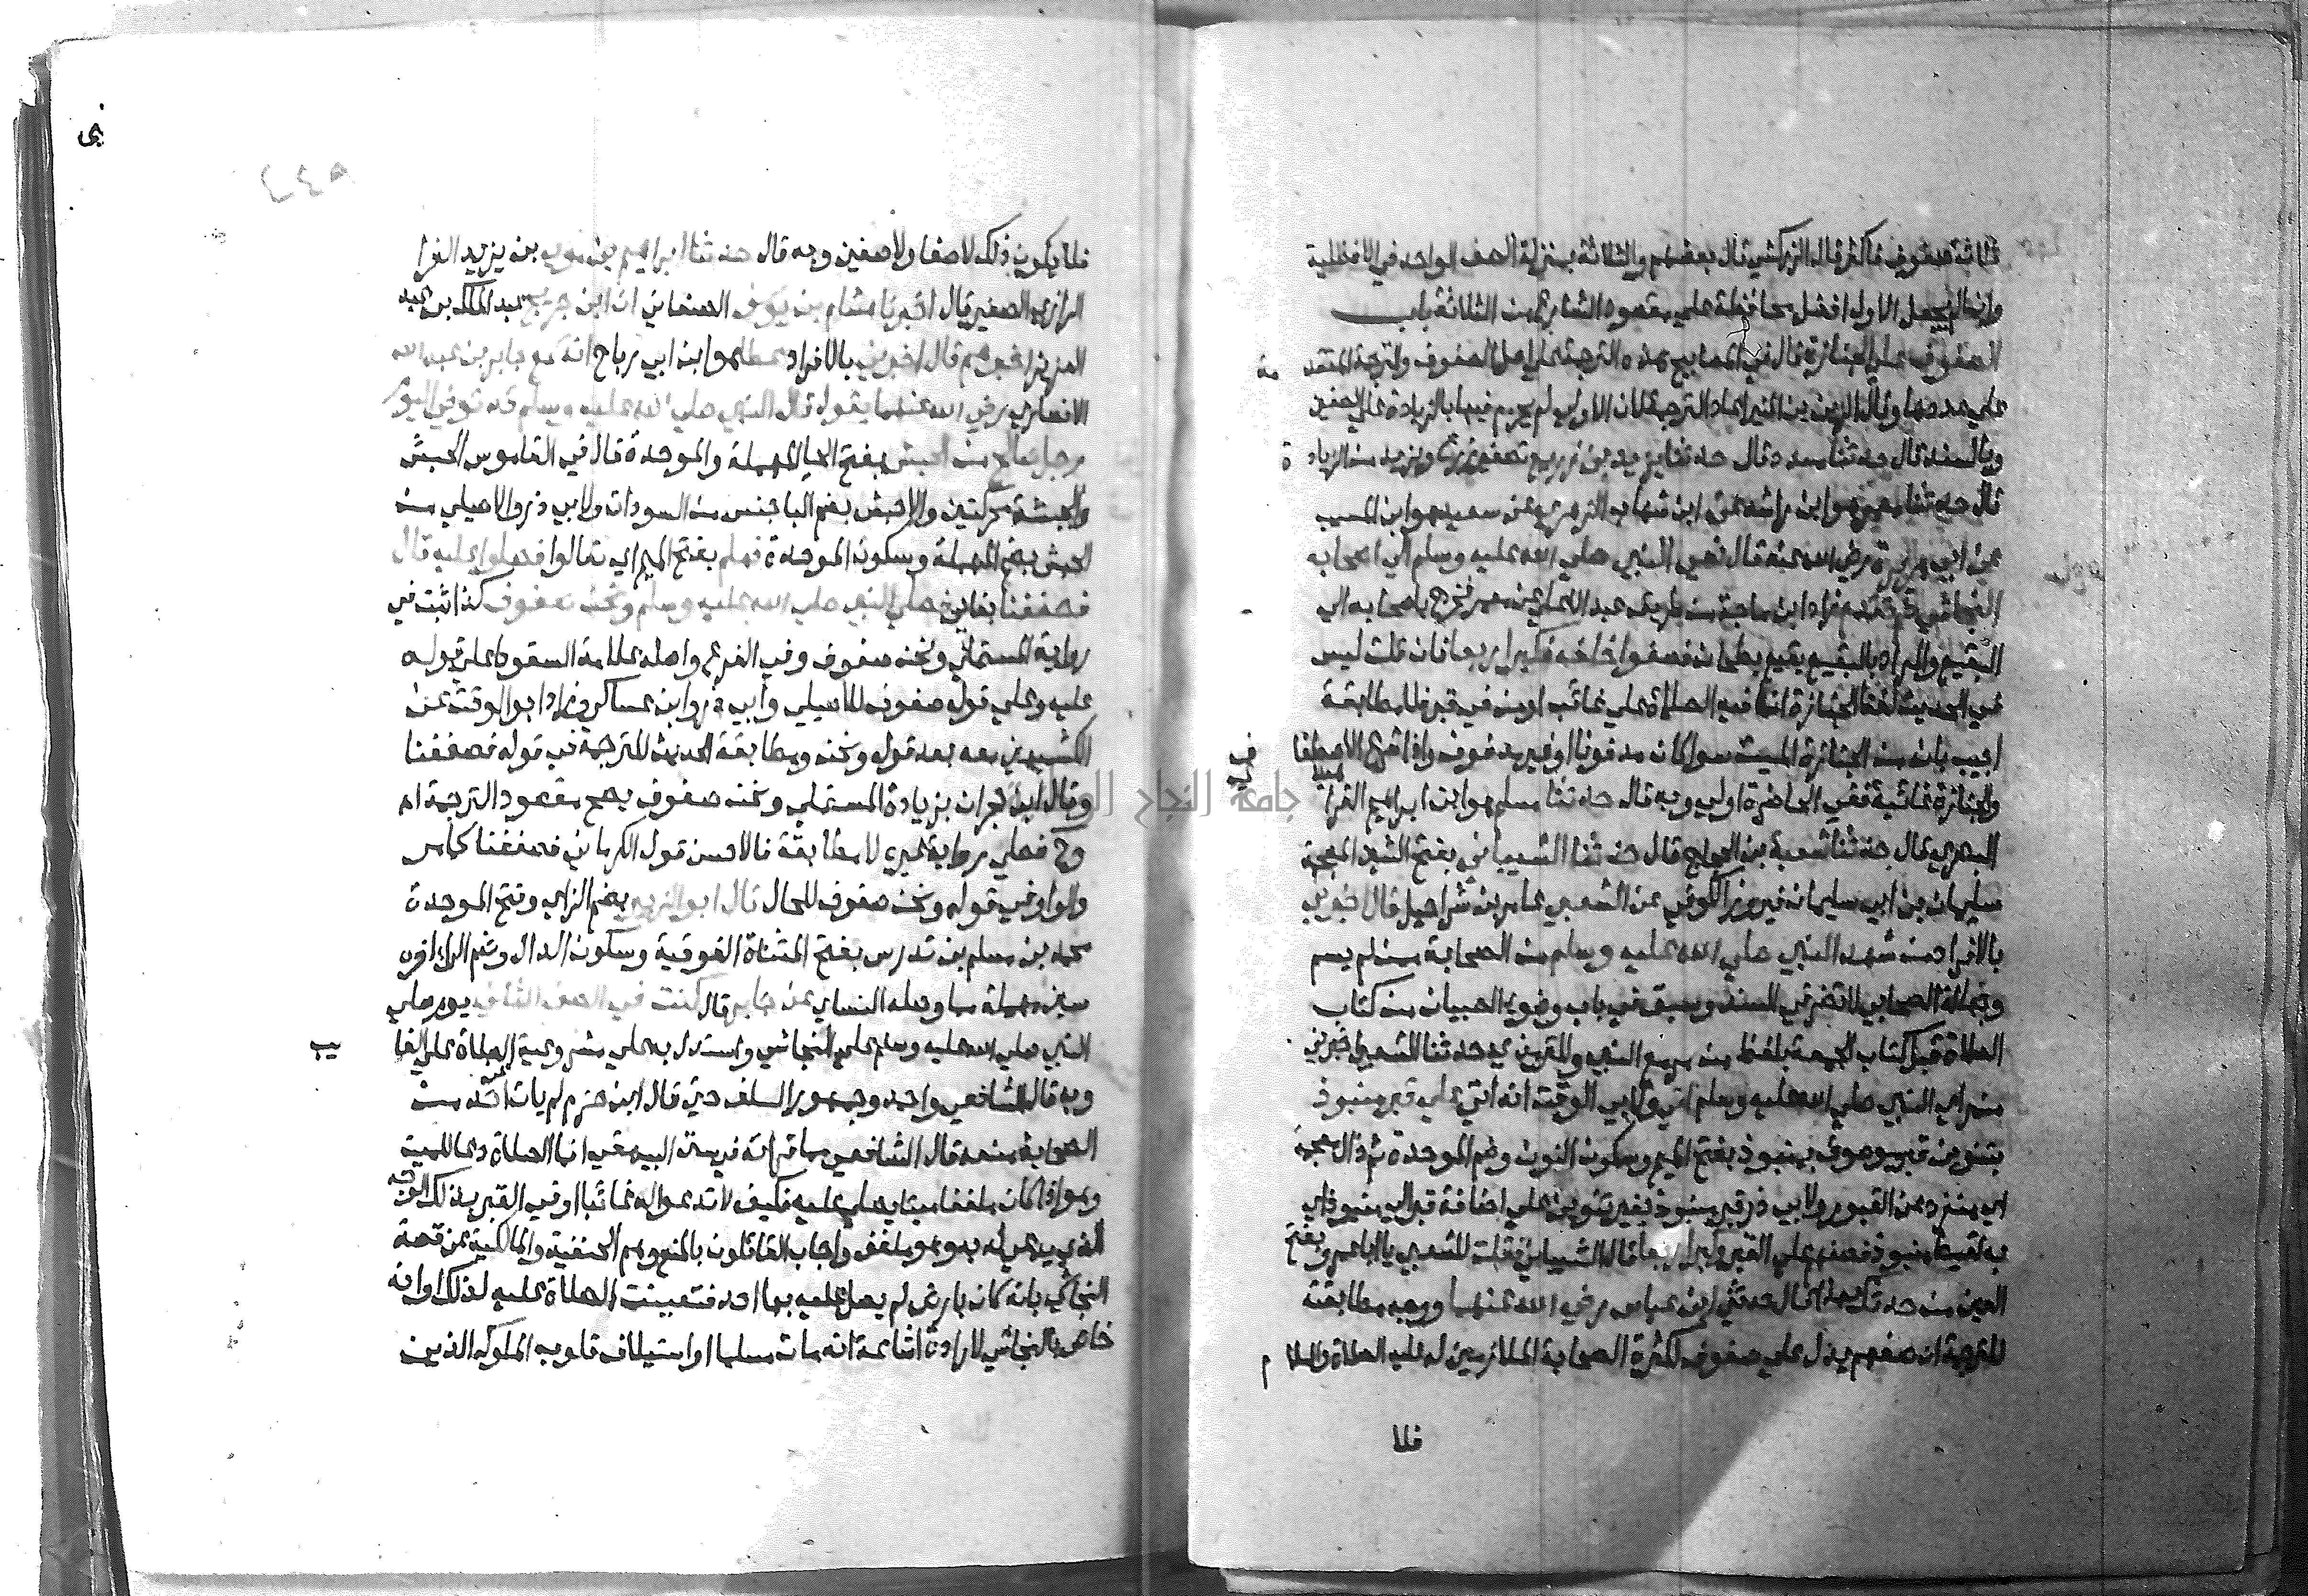 ثلاثة صفوف فاكثر قال الزركشي قال بعضهم والثلاثة بمنزلة الصف الواحد في الافضلية
وانما لم يجعل الاول افضل محافظة على مقصود الشارع من الثلاثة باب
الصفوف على الجنازة قال في المصابيح هذه الترجمة على اصل الصفوف والترجمة المتقد مة
على عددها وقال الزين بن المنير اعاد الترجمة لان الاولى لم يجزم فيها بالزيادة على الصفين
وبالسند قال حدثنا مسدد قال حدثنا يزيد بن زريع تصغير زرع ويزيد من الزياد ة
قال حدثنا معمر هو ابن راشد عن ابن شهاب الزهري عن سعيد هو ابن المسيب
عن ابي هريرة رضي الله عنه قال نعى النبي صلي الله عليه وسلم الي اصحابه
النجاشي ثم تقدم زاد ابن ماجة من طريق عبد الاعلى عن معمر فخرج باصحابه الى
البقيع والمراد بالبقيع بقيع بطحان فصفوا خلفه فكبر اربعا فان قلت ليس
في الحديث لفظ الجنازة انما فيه الصلاة على غائب او من في قبر فلا مطابقة
اجيب بان من الجنازة الميت سوا كان مدفونا او غير مدفون واذا شرع الاصطفا ف
والجنازة غائبة ففي الحاضرة اولى وبه قال حدثنا مسلم هو ابن ابراهيم الفرا هيدي
البصري قال حدثنا شعبة بن الحجاج قال حدثنا الشيباني بفتح الشين المعجمة
سليمان بن ابي سليمان فيروز الكوفي عن الشعبي عامر بن شراحيل قال اخبرني
بالافراد من شهد النبي صلي الله عليه وسلم من الصحابة ممن لم يسم
وجهالة الصحابي لا تضر في السند وسبق في باب وضوء الصبيان من كتاب
الصلاة قبل كتاب الجمعة بلفظ من مر مع النبي وللترمذي حدثنا الشعبي اخبرني
من راي النبي صلي الله عليه وسلم اتى ولابي الوقت انه اتى على قبر منبوذ
بتنوين قبر وصوف بمنبوذ بفتح الميم وسكون النون وضم الموحدة ثم ذال معجمة
اي منفرد عن القبور ولابي ذر قبر منبوذ بغير تنوين على اضافة قبر الى منبوذ اي
به لقيط منبوذ فصفهم على القبر وكبر اربعا قال الشيباني فقلت للشعبي يا ابا عمرو بفتح
العين من حدثك بهذا قال حدثني ابن عباس رضي الله عنهما ووجه مطابقته
للترجمة ان صفهم يدل على صفوف لكثرة الصحابة الملازمين له عليه الصلاة والسلا م
فلا
فلا يكون ذلك لا صفا ولا صفين وبه قال حدثنا ابراهيم بن موسى بن يزيد الفرا
الرازي الصغير قال اخبرنا هشام بن يوسف الصنعاني ان ابن جريج عبد الملك بن عبد
العزيز اخبرهم قال اخبرني بالافراد عطا هو ابن ابي رباح انه سمع جابر بن عبد الله
الانصاري رضي الله عنهما يقول قال النبي صلي الله عليه وسلم قد توفي اليوم
رجل صالح من الحبش بفتح الحا المهملة والموحدة قال في القاموس الحبش
والحبشة محركتين والاحبش بضم البا جنس من السودان ولابي ذر والاصيلي من
الحبش بضم المهملة وسكون الموحدة فهلم بفتح الميم اي تعالوا فصلوا عليه قال
فصففنا بفاين فصلى النبي صلي الله عليه وسلم ونحن صفوف كذا ثبت في
رواية المستملي ونحن صفوف وفي الفرع واصله علامة السقوط على قوله
عليه وعلى قوله صفوف للاصيلي وابي ذر وابن عساكر وزاد ابو الوقت عن
الكشميهني معه بعد قوله ونحن ومطابقة الحديث للترجمة في قوله فصففنا
وقال ابن حجر ان بزيادة المستملي ونحن صفوف يصح مقصود الترجمة اه
وح فعلى رواية غيره لا مطابقة فالاحسن قول الكرماني فصففنا كما مر
والواو في قوله ونحن صفوف للحال قال ابو الزبير بضم الزاي وفتح الموحدة
محمد بن مسلم بن تدرس بفتح المثناة الفوقية وسكون الدال وضم الراء اخره
سين مهملة مما وصله النساي عن جابر قال كنت في الصف الثاني يوم صلي
النبي صلي الله عليه وسلم على النجاشي واستدل به على مشروعية الصلاة على الغا يب
وبه قال الشافعي واحمد وجمهور السلف حتى قال ابن حزم لم يات عن احد من
الصحابة منعه قال الشافعي مما قراته في سنن البيهقي انما الصلاة دعا للميت
وهو اذا كان ملففا ميتا يصلي عليه فكيف لا ندعوا له غائبا او في القبر بذلك الوجه
الذي يدعى له به وهو ملفف واجاب القائلون بالمنع وهم الحنفية والمالكية عن قصة
النجاشي بانه كان بارض لم يصل عليه بها احد فتعينت الصلاة عليه لذلك او انه
خاص بالنجاشي لارادة اشاعة انه مات مسلما او استيلاف قلوب الملوك الذين